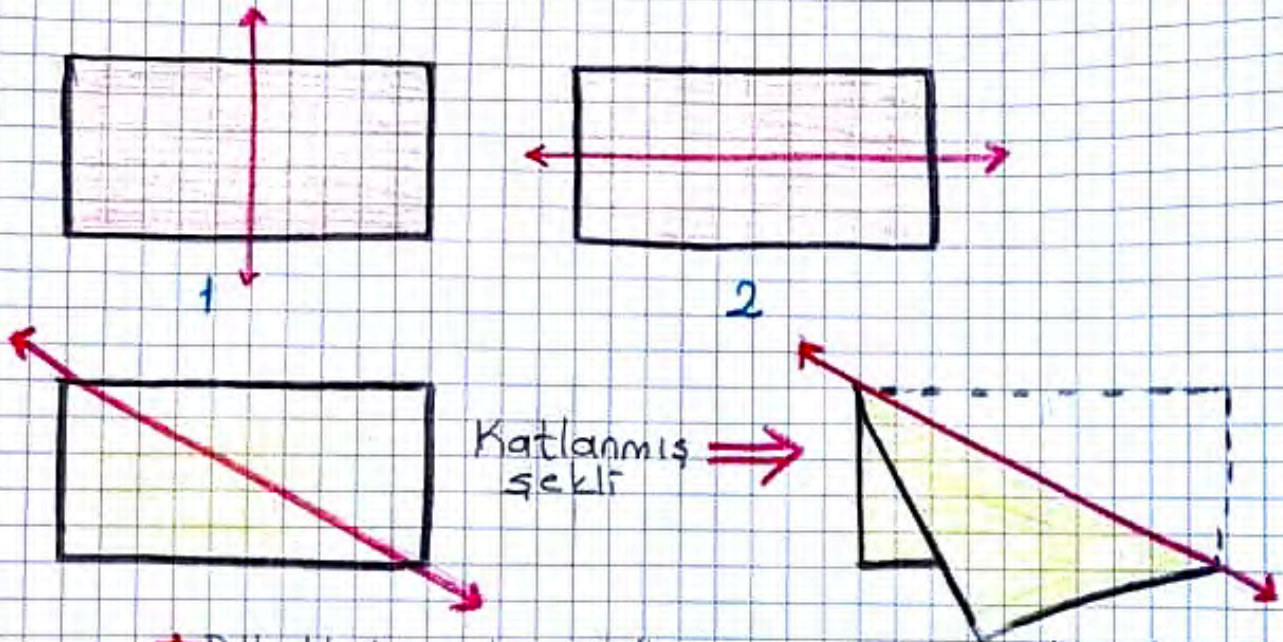 1
2
Katlanmış
şekli